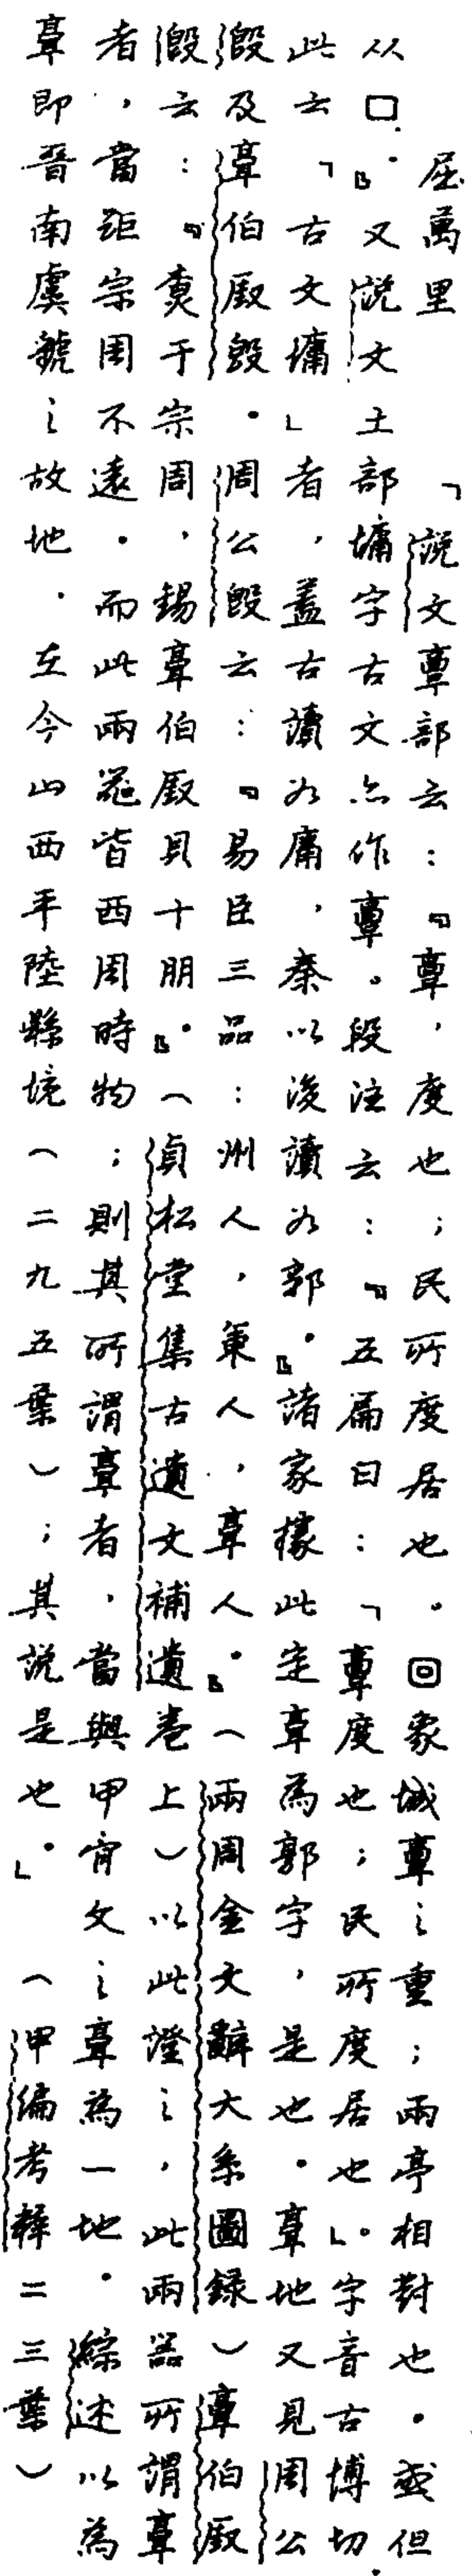 屈萬里　「說文𩫏部云：『𩫏，度也；民所度居也。回象城𩫏之重；兩亭相對也。或但
从囗。』又說文土部墉字古文亦作𩫏。段注云：『玉篇曰：「𩫏度也；民所度居也」。字音古博切
此云「古文墉」者，蓋古讀如庸，秦以後讀如郭。』諸家據此定𩫏為郭字，是也。𩫏地又見周公
毁及𩫏伯𠭯毁。周公毁云：『易臣三品：州人，東人，𩫏人。』（兩周金文辭大系圖錄）𩫏伯𠭯
毁云：『賁于宗周，錫𩫏伯𠭯貝十朋。』（貞松堂集古遺文補遺卷上）以此證之，此兩器所謂𩫏
者，當距宗周不遠。而此兩器皆西周時物；則其所謂𩫏者，當與甲骨文之𩫏為一地。綜述以為
𩫏即晉南虞虢之故地。在今山西平陸縣境（二九五葉）；其說是也。」（甲編考釋二三葉）